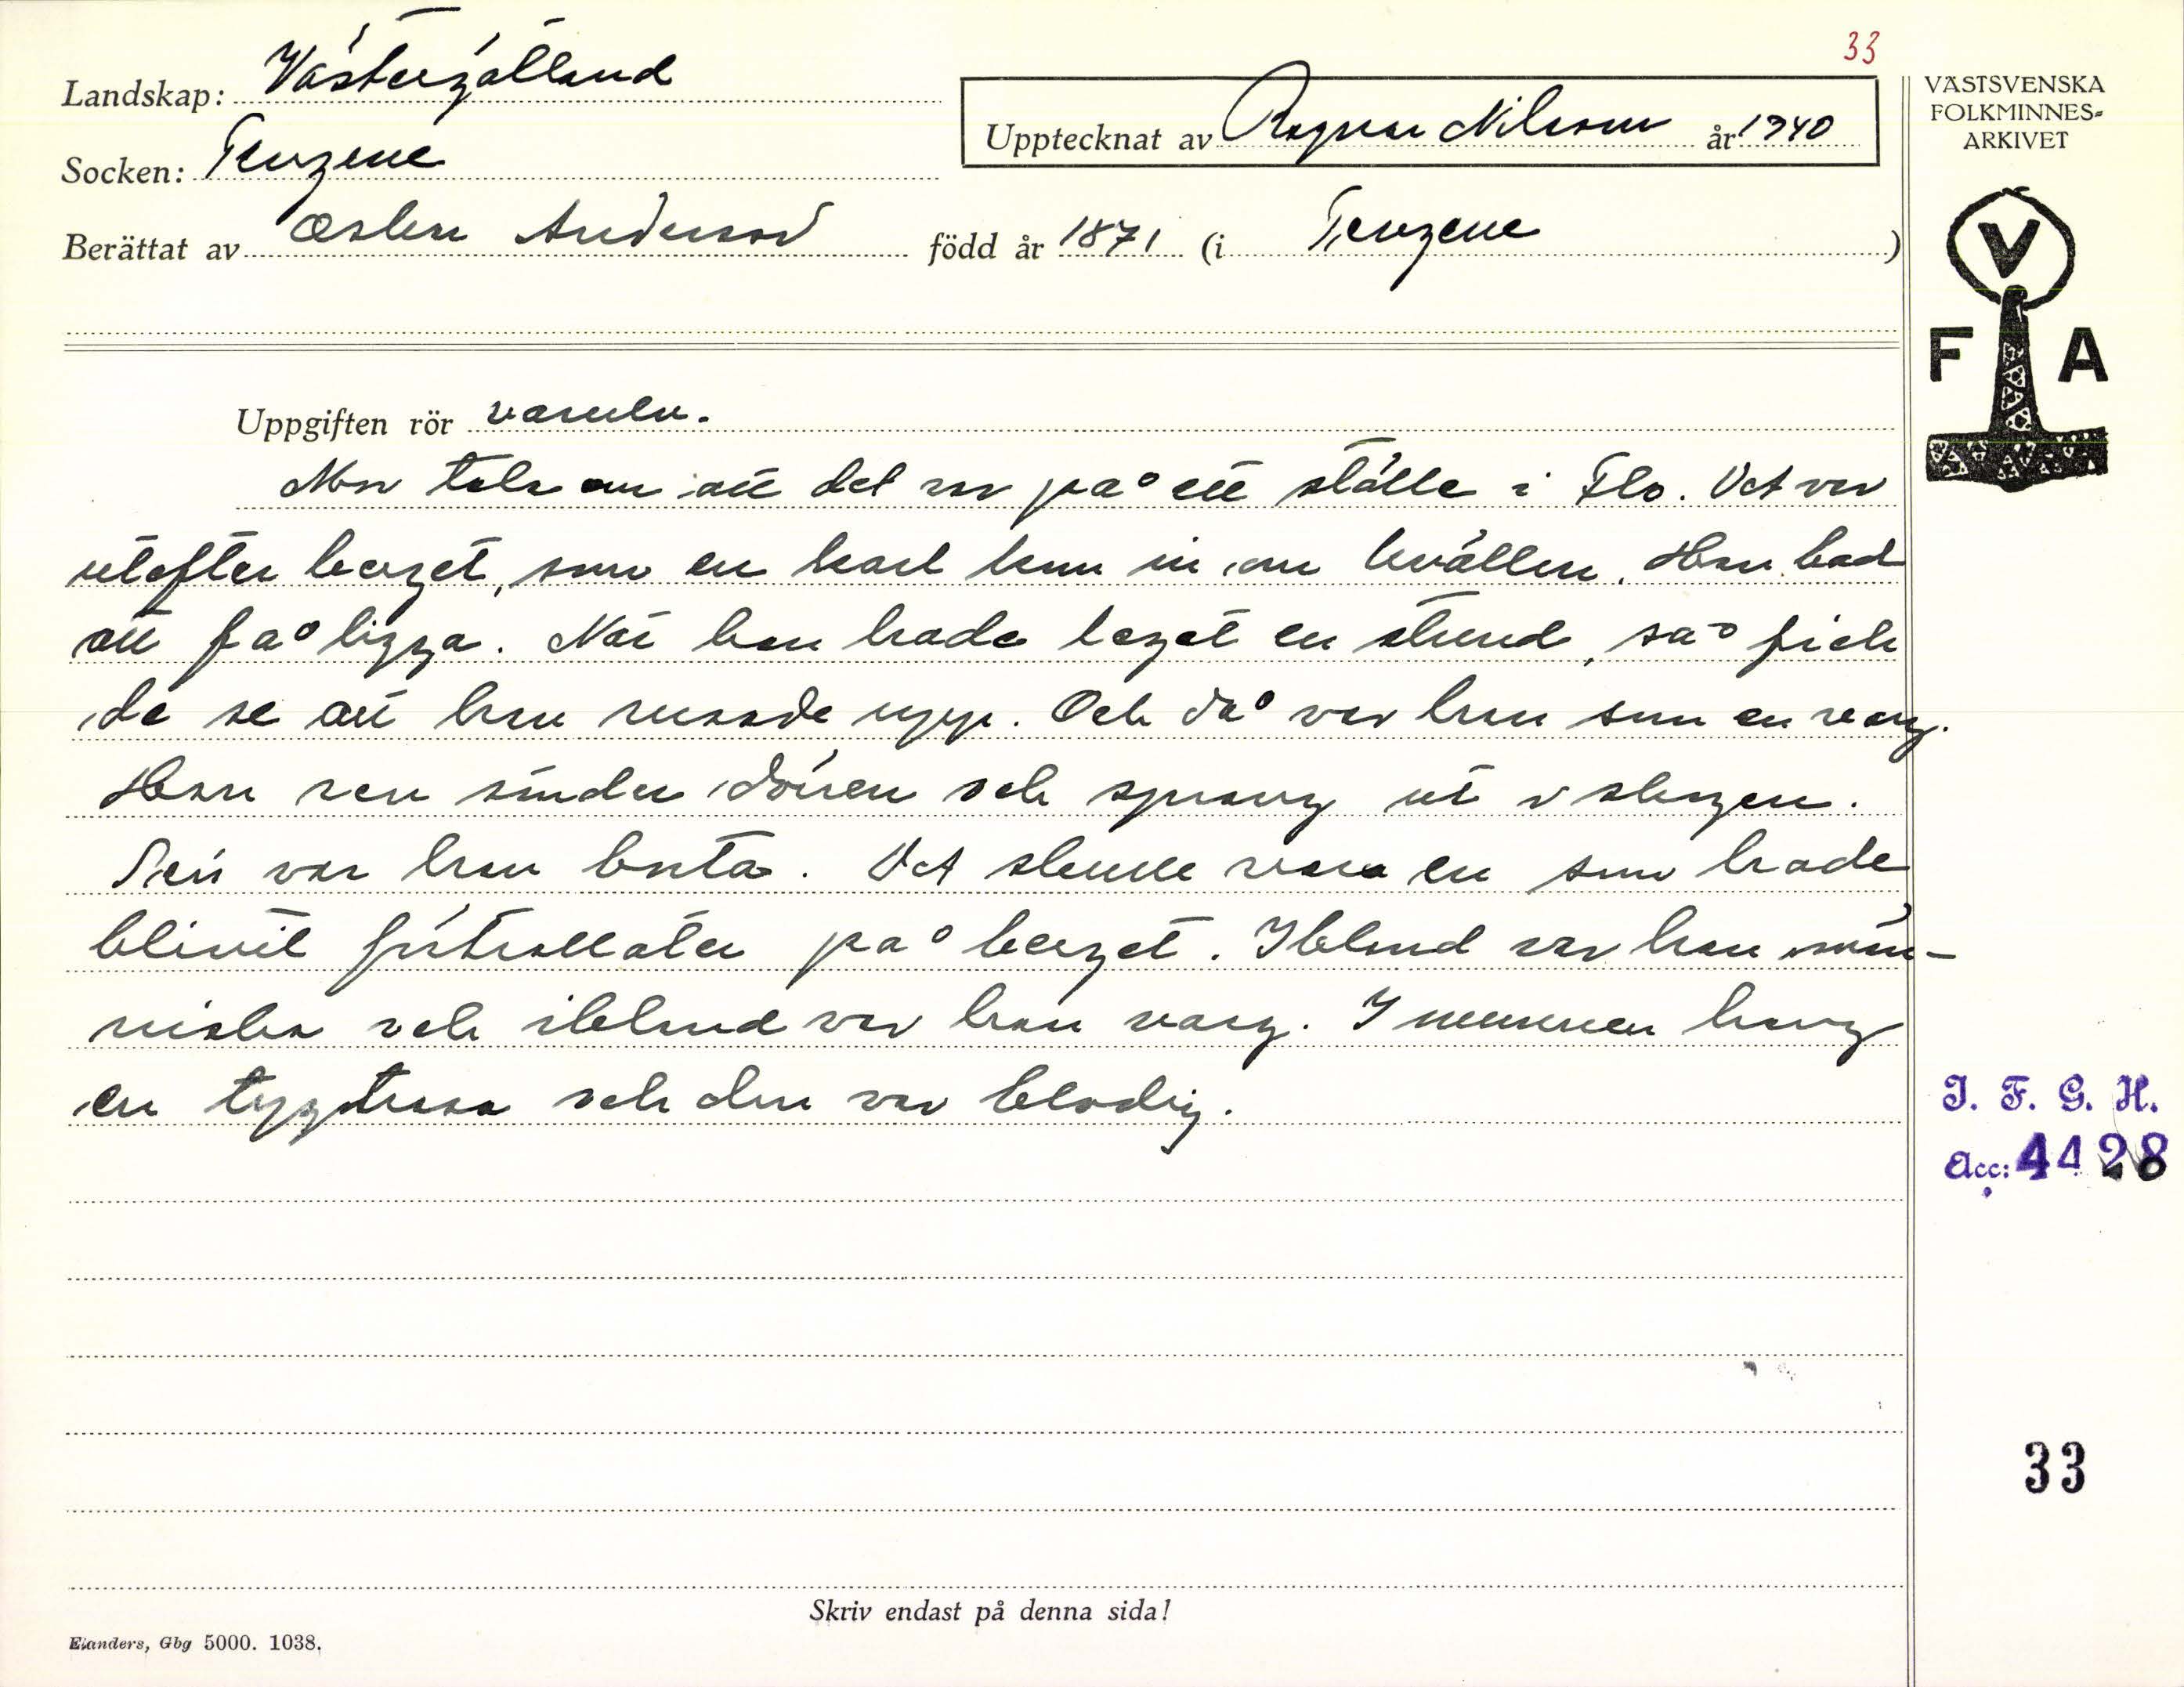 33
Landskap: Västergötland
Upptecknat av Ragnar Nilsson år 1940
VÄSTSVENSKA
FOLKMINNES=
ARKIVET
Socken: Tengene
Berättat av Oskar Andersson född år 1871 (i Tengene)
V
F A
Uppgiften rör varulv.
Mor tala om att det var på ett ställe i Flo. Det var
utefter berget, som en karl kom in om kvällen. Han bad
att få ligga. När han hade legat en stund, så fick
de se att han rusade upp. Och då var han som en varg.
Han ren sönder dörren och sprang ut i skogen.
Sen var han borta. Det skulle vara en som hade
blivit förtrollater på berget. Ibland var han män-
niska och ibland var han varg. I munnen hang
en tygtrasa och den var blodig.
I. F. G. H.
Acc: 4428
33
Skriv endast på denna sida!
Elanders, Gbg 5000. 1038.